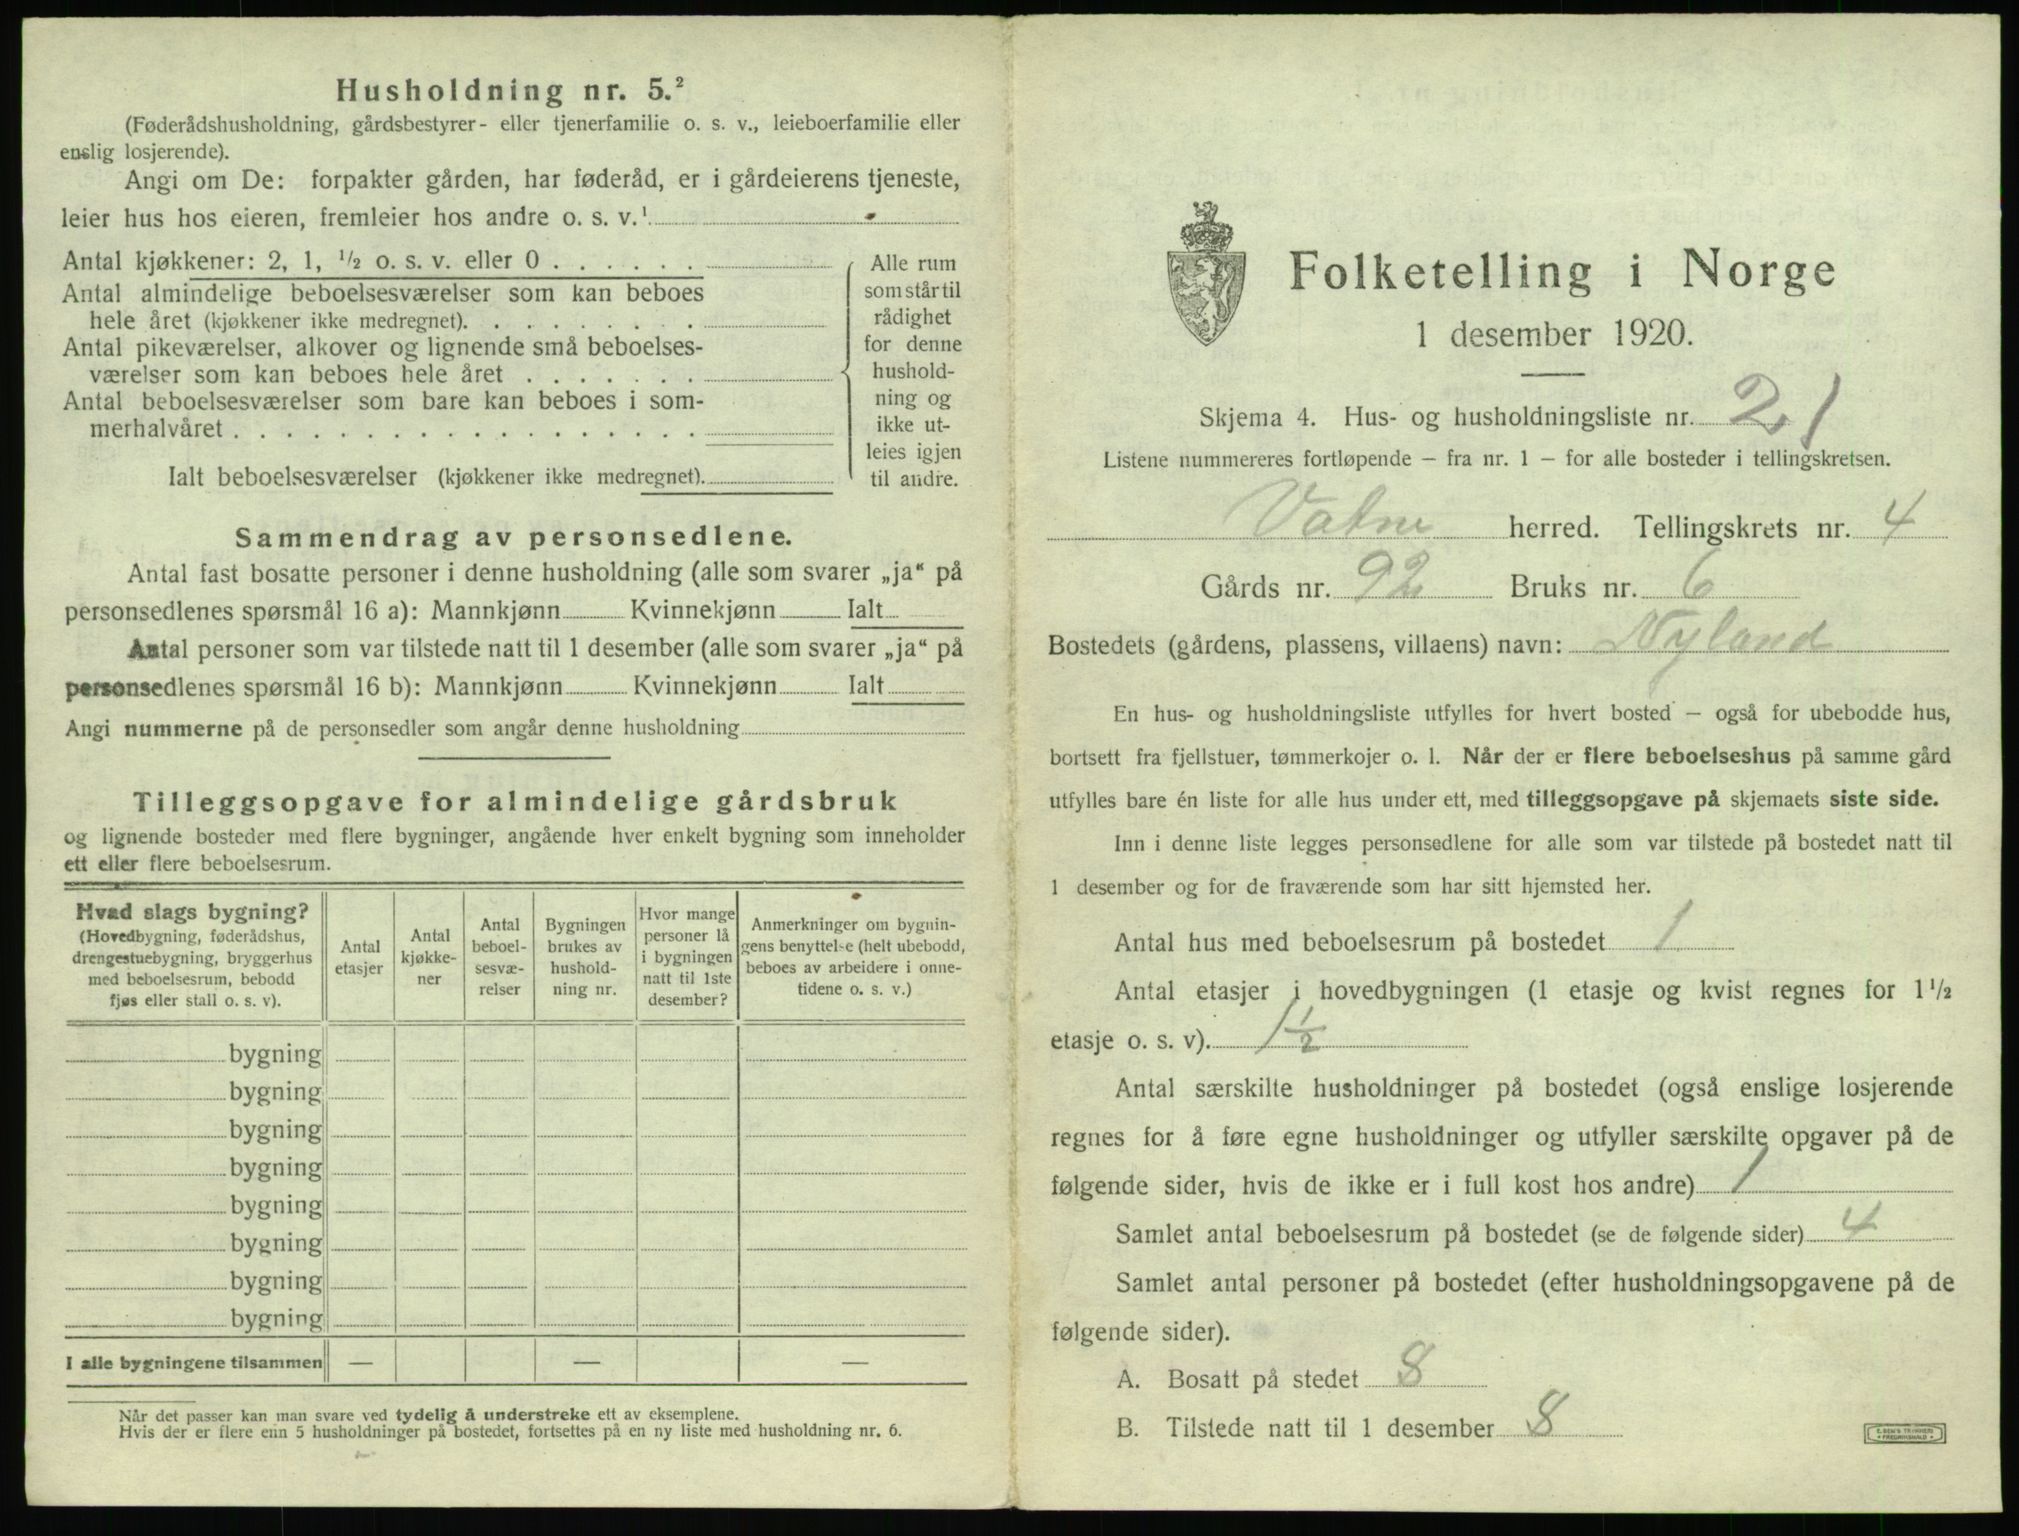 Husholdning nr. 5.²
(Føderådshusholdning, gårdsbestyrer- eller tjenerfamilie o. s. v., leieboerfamilie eller
enslig losjerende).
Angi om De: forpakter gården, har føderåd, er i gårdeierens tjeneste,
leier hus hos eieren, fremleier hos andre o. s. v.¹
Antal kjøkkener: 2, 1, ½ o. s. v. eller 0 . . . . . .
Antal almindelige beboelsesværelser som kan beboes
hele året (kjøkkener ikke medregnet). . . . . . . . .
Antal pikeværelser, alkover og lignende små beboelses-
værelser som kan beboes hele året . . . . . . .
Antal beboelsesværelser som bare kan beboes i som-
merhalvåret . . . . . . . . . . . . . . . . . .
Ialt beboelsesværelser (kjøkkener ikke medregnet).
Alle rum
som står til
rådighet
for denne
hushold-
ning og
ikke ut-
leies igjen
til andre.
Sammendrag av personsedlene.
Antal fast bosatte personer i denne husholdning (alle som svarer „ja“ på
personsedlenes spørsmål 16 a): Mannkjønn Kvinnekjønn Ialt
Antal personer som var tilstede natt til 1 desember (alle som svarer „ja“ på
personsedlenes spørsmål 16 b): Mannkjønn Kvinnekjønn Ialt
Angi nummerne på de personsedler som angår denne husholdning
Tilleggsopgave for almindelige gårdsbruk
og lignende bosteder med flere bygninger, angående hver enkelt bygning som inneholder
ett eller flere beboelsesrum.
Hvad slags bygning?
(Hovedbygning, føderådshus,
drengestuebygning, bryggerhus
med beboelsesrum, bebodd
fjøs eller stall o. s. v).
Antal
etasjer
Antal
kjøkke-
ner
Antal
beboel-
sesvæ-
relser
Bygningen
brukes av
hushold-
ning nr.
Hvor mange
personer lå
i bygningen
natt til 1ste
desember?
Anmerkninger om bygnin-
gens benyttelse (helt ubebodd,
beboes av arbeidere i onne-
tidene o. s. v.)
bygning
bygning
bygning
bygning
bygning
bygning
bygning
bygning
I alle bygningene tilsammen — — —
Når det passer kan man svare ved tydelig å understreke ett av eksemplene.
Hvis der er flere enn 5 husholdninger på bostedet, fortsettes på en ny liste med husholdning nr. 6.
Folketelling i Norge
1 desember 1920.
Skjema 4. Hus- og husholdningsliste nr. 21
Listene nummereres fortløpende – fra nr. 1 – for alle bosteder i tellingskretsen.
Vatne herred. Tellingskrets nr. 4
Gårds nr. 92 Bruks nr. 6
Bostedets (gårdens, plassens, villaens) navn: Nyland
En hus- og husholdningsliste utfylles for hvert bosted – også for ubebodde hus,
bortsett fra fjellstuer, tømmerkojer o. l. Når der er flere beboelseshus på samme gård
utfylles bare én liste for alle hus under ett, med tilleggsopgave på skjemaets siste side.
Inn i denne liste legges personsedlene for alle som var tilstede på bostedet natt til
1 desember og for de fraværende som har sitt hjemsted her.
Antal hus med beboelsesrum på bostedet 1
Antal etasjer i hovedbygningen (1 etasje og kvist regnes for 1½
etasje o. s. v). 1½
Antal særskilte husholdninger på bostedet (også enslige losjerende
regnes for å føre egne husholdninger og utfyller særskilte opgaver på de
følgende sider, hvis de ikke er i full kost hos andre) 1
Samlet antal beboelsesrum på bostedet (se de følgende sider) 4
Samlet antal personer på bostedet (efter husholdningsopgavene på de
følgende sider).
A. Bosatt på stedet 8
B. Tilstede natt til 1 desember 8